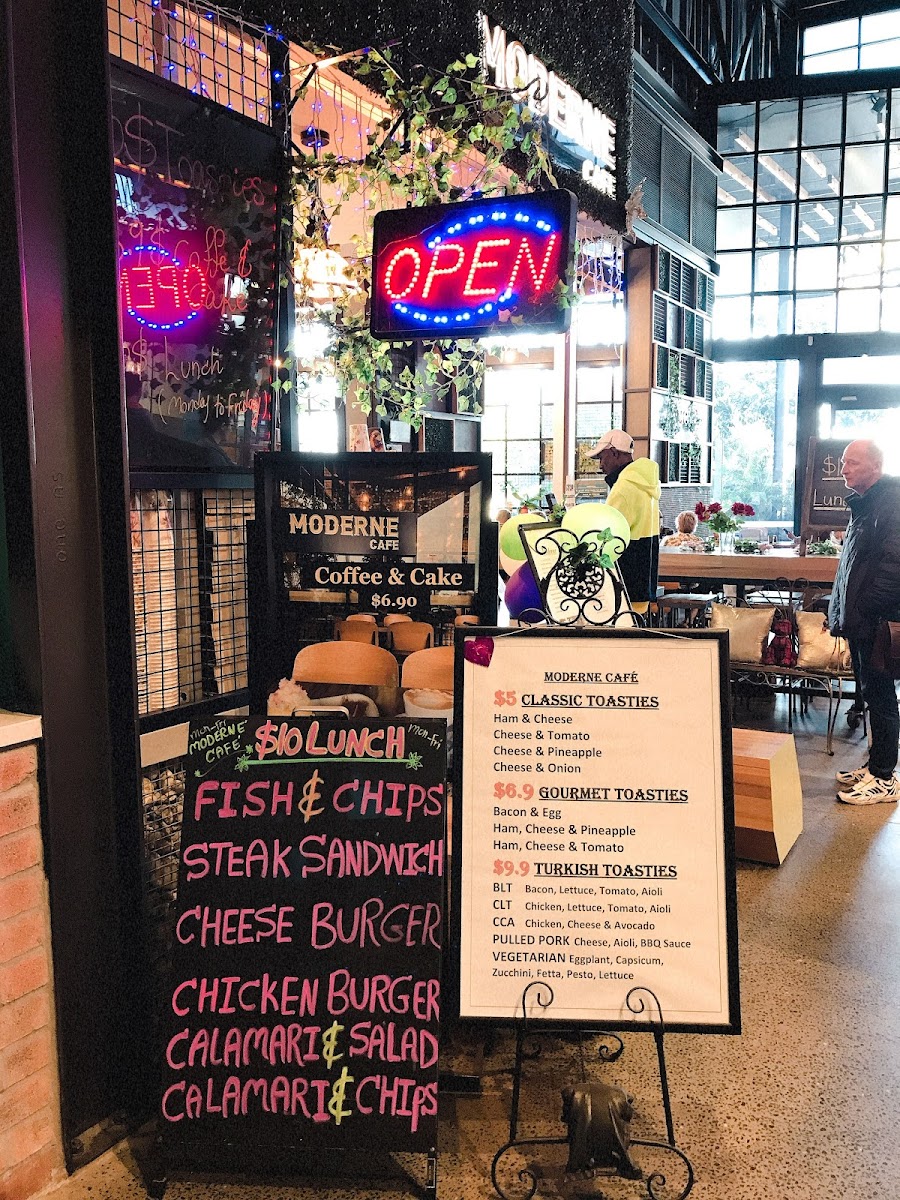 MODERNE
CAFE
OPEN
$Toasties
$ Coffee &
Cake
OPEN
Lunch
(Monday to Friday)
MODERNE
CAFE
Coffee & Cake
$6.90
Lunch
one ns
mon-fri
MODERNE
CAFE
$10 LUNCH
mon-fri
FISH & CHIPS
STEAK SANDWICH
CHEESE BURGER
CHICKEN BURGER
CALAMARI & SALAD
CALAMARI & CHIPS
MODERNE CAFÉ
$5 CLASSIC TOASTIES
Ham & Cheese
Cheese & Tomato
Cheese & Pineapple
Cheese & Onion
$6.9 GOURMET TOASTIES
Bacon & Egg
Ham, Cheese & Pineapple
Ham, Cheese & Tomato
$9.9 TURKISH TOASTIES
BLT Bacon, Lettuce, Tomato, Aioli
CLT Chicken, Lettuce, Tomato, Aioli
CCA Chicken, Cheese & Avocado
PULLED PORK Cheese, Aioli, BBQ Sauce
VEGETARIAN Eggplant, Capsicum,
Zucchini, Fetta, Pesto, Lettuce